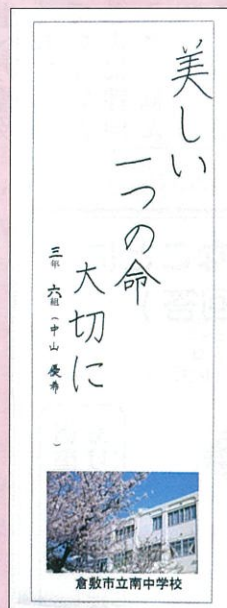 美しい
一つの命
大切に
三年 六組（中山 優希 ）
倉敷市立南中学校